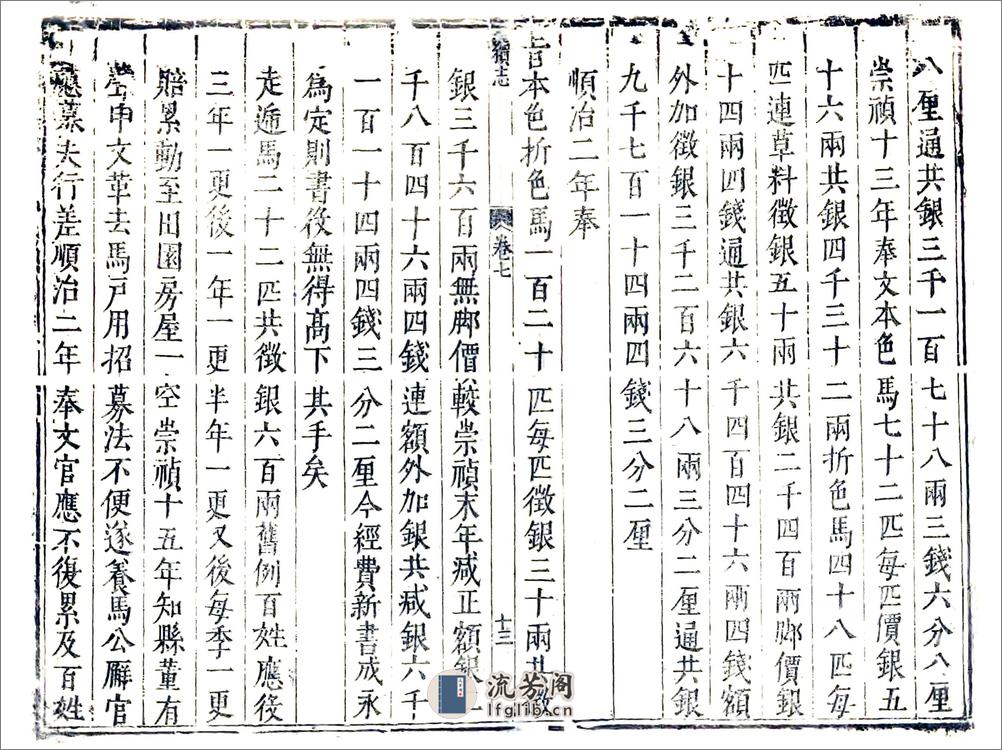 八厘通共銀三千一百七十八兩三錢六分八厘
崇禎十三年奉文本色馬七十二匹每匹價銀五
十六兩共銀四千三十二兩折色馬四十八匹每
匹連草料徵銀五十兩共銀二千四百兩脚價銀
十四兩四錢通共銀六千四百四十六兩四錢額
外加徵銀三千二百六十八兩三分二厘通共銀
九千七百一十四兩四錢三分二厘
順治二年奉
旨本色折色馬一百二十匹每匹徵銀三十兩共徵
續志 卷七 十三
銀三千六百兩無脚價較崇禎末年減正額銀二
千八百四十六兩四錢連額外加銀共減銀六千
一百一十四兩四錢三分二厘今經費新書成永
爲定則書後無得高下其手矣
走遞馬二十二匹共徵銀六百兩舊例百姓應後
三年一更後一年一更半年一更又後每季一更
賠累動至田園房屋一空崇禎十五年知縣董有
聲申文革去馬戸用招募法不便遂養馬公廨官
應募夫行差順治二年奉文官應不復累及百姓
流芳阁
lfglib.cn